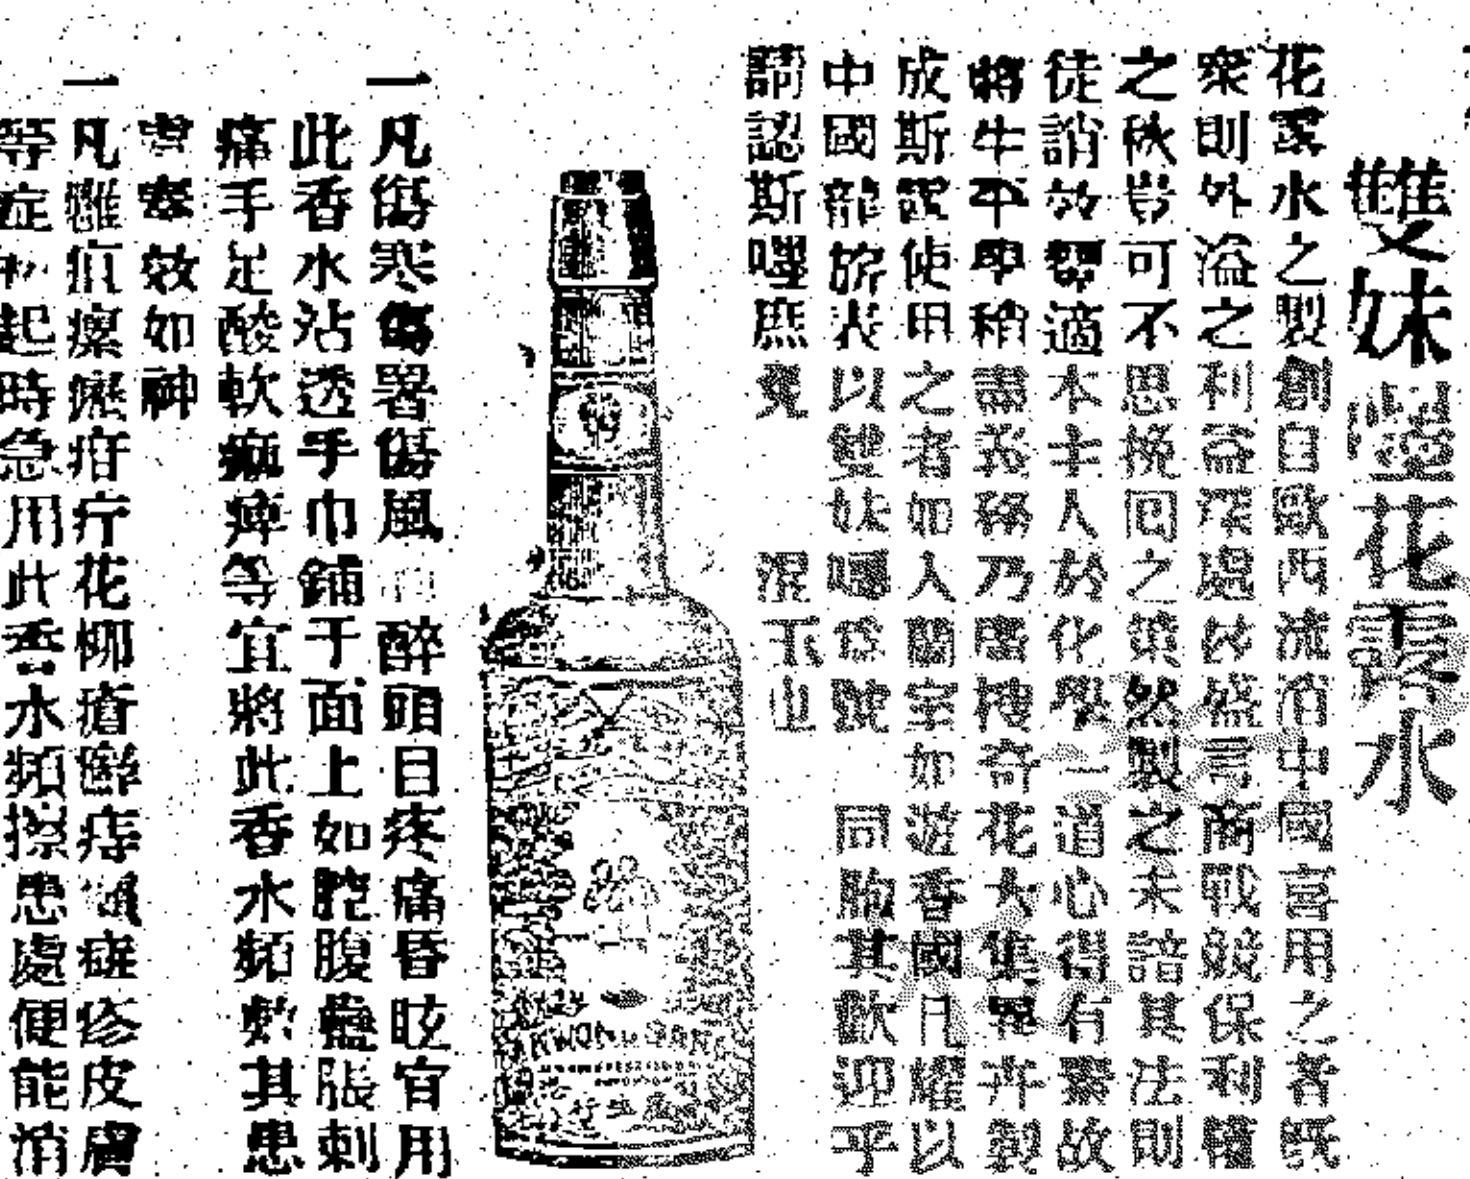 雙妹嚜花露水
花露水之製創自歐西流消中國喜用之者旣
衆則外溢之利益深處妙盛言商戰競保利權
之秋豈可不思挽囘之策然製之未諳其法則
徒誚效顰適本主人於化學一道心得有素故
將生平所稍盡義務乃廣搜奇花大集異卉製
成斯露使用之者如入蘭室如遊香國凡耀以
中國龍旂表以雙妹嚜爲號 同胞其歡迎乎
請認斯嘜庶免 混 不也
一凡傷寒傷暑傷風 醉頭目疼痛昏眩宜用
此香水沾透手巾鋪于面上如腔腹蠱脹刺
痛手足酸軟痲痺等宜將此香水頻敷其患
處奏效如神
一凡 瘢癍 疔花柳瘡癬痔 疵疹皮膚
等症初起時急用此香水頻擦患處便能消
KWONG SAN